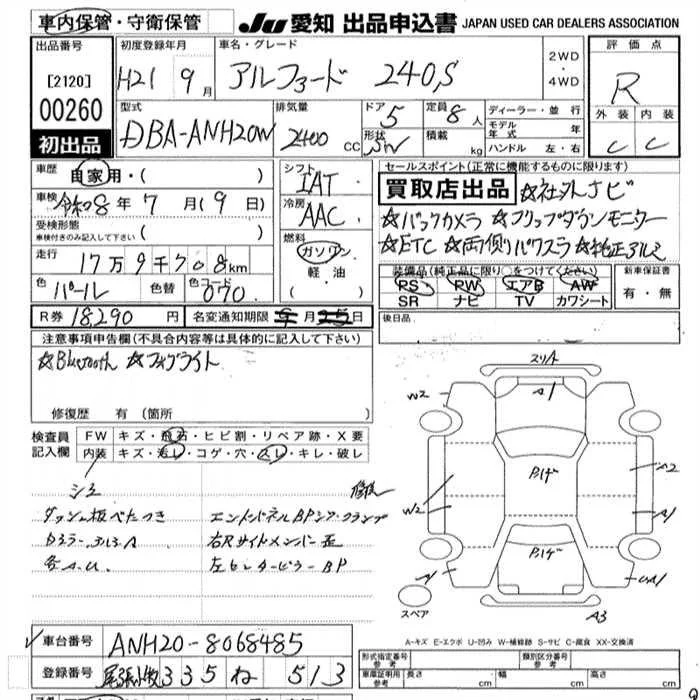 車内保管・守衛保管 JU 愛知 出品申込書 JAPAN USED CAR DEALERS ASSOCIATION
出品番号 初度登録年月 車名・グレード 2WD・4WD 評価点
[2120] H21 9月 アルファード 240,S R
00260 型式 排気量 ドア 定員 ディーラー・並行 外装 内装
初出品 DBA-ANH20W 2400cc 5 8人 モデル年式 年 C C
形状 SW 積載 kg ハンドル 左・右
車歴 自家用・( ) シフト IAT セールスポイント(正常に機能するものに限ります)
車検 令和8年7月(9日) 冷房 AAC 買取店出品 ☆社外ナビ
受検形態 車検付きのみ記入して下さい ( ) ☆バックカメラ ☆フリップダウンモニター
走行 17万9千708km 燃料 ガソリン・軽油・ ☆ETC ☆両側パワスラ ☆純正アルミ
色 パール 色替 色コード 070 装備品(純正品に限り○をつけてください) 新車保証書
PS PW エアB AW 有・無
SR ナビ TV カワシート
R券 18,290円 名変通知期限 月 日 後日品
注意事項申告欄(不具合内容等は具体的に記入して下さい)
☆Bluetooth ☆フォグライト
修復歴 有 (箇所
検査員記入欄 FW キズ・飛石・ヒビ割・リペア跡・X要
内装 キズ・汚レ・コゲ・穴・スレ・キレ・破レ
シミ 修復
ダッシュ板べたつき エンドパネルBP
右Rサイドメンバー歪
各A.U. 左センターピラーBP
スリキズ
W2 A1
P.レゲ A2
W2 A1
P.レゲ
A1 UA1
スペア A3
A-キズ E-エクボ U-凹み W-補修跡 S-サビ C-腐食 XX-交換済
車台番号 ANH20-8068485
登録番号 尾張小牧 335 ね 513
形式指定番号 参考 類別区分番号 参考
車庫証明用 参考 長さ cm 幅 cm 高さ cm